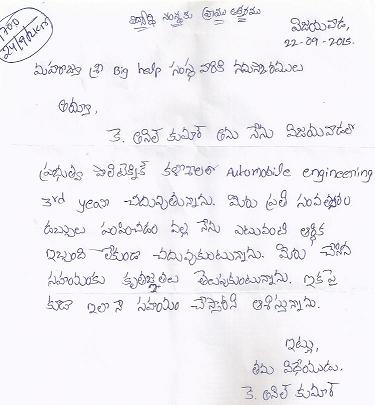 విద్యార్థి సంస్థకు వ్రాయు
1700
24/9/2015
విజయవాడ,
22-09-2015.
మహారాజశ్రీ Big help సంస్థ వారికి నమస్కారములు
అయ్యా,
కె. అనిల్ కుమార్ అను నేను విజయవాడలో
ప్రభుత్వ పాలిటెక్నిక్ కళాశాలలో Automobile engineering
3rd year చదువుతున్నాను. మీరు ప్రతీ సంవత్సరం
డబ్బులు పంపించడం వల్ల నేను ఎటువంటి ఆర్థిక
ఇబ్బంది లేకుండా చదువుకుంటున్నాను. మీరు చేసిన
సహాయంకు కృతజ్ఞతలు తెలుపుకుంటున్నాను. ఇక పై
కూడా ఇలానే సహాయం చేస్తారని ఆశిస్తున్నాను.
ఇట్లు,
తమ విధేయుడు.
కె. అనిల్ కుమార్